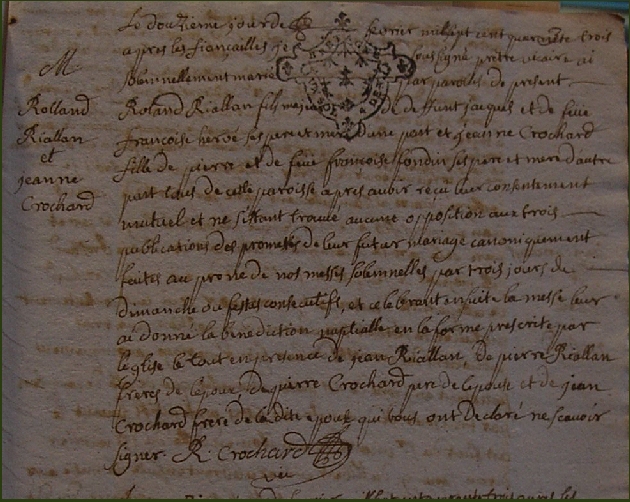 Le douzieme jour de fevrier mil sept cent quarente trois
apres les fiancailles je soussigné prêtre vicaire ai
solemnellement marié par paroles de present
M
Rolland
Riallan
et
jeanne
Crochard
Roland Riallan fils majeur de deffunt jacques et de feüe
francoise hervé ses pere et mere d'une part et jeanne Crochard
fille de pierre et de feüe francoise londin ses pere et mere d'autre
part tous de cette paroisse apres avoir reçu leur consentement
mutuel et ne s'ettant trouvé aucune opposition aux trois
publications des promesses de leur futur mariage canoniquement
faites au prone de nos messes solemnelles par trois jours de
dimanche ou festes consecutifs, et celebrant ensuite la messe leur
ai donné la benediction nuptialle en la forme prescrite par
leglise le tout en presence de jean Riallan, de pierre Riallan
freres de lepoux, de pierre Crochard pere de lepouse et de jean
Crochard frere de la dite epouse qui tous ont declaré ne scavoir
signer. R. Crochard
vic